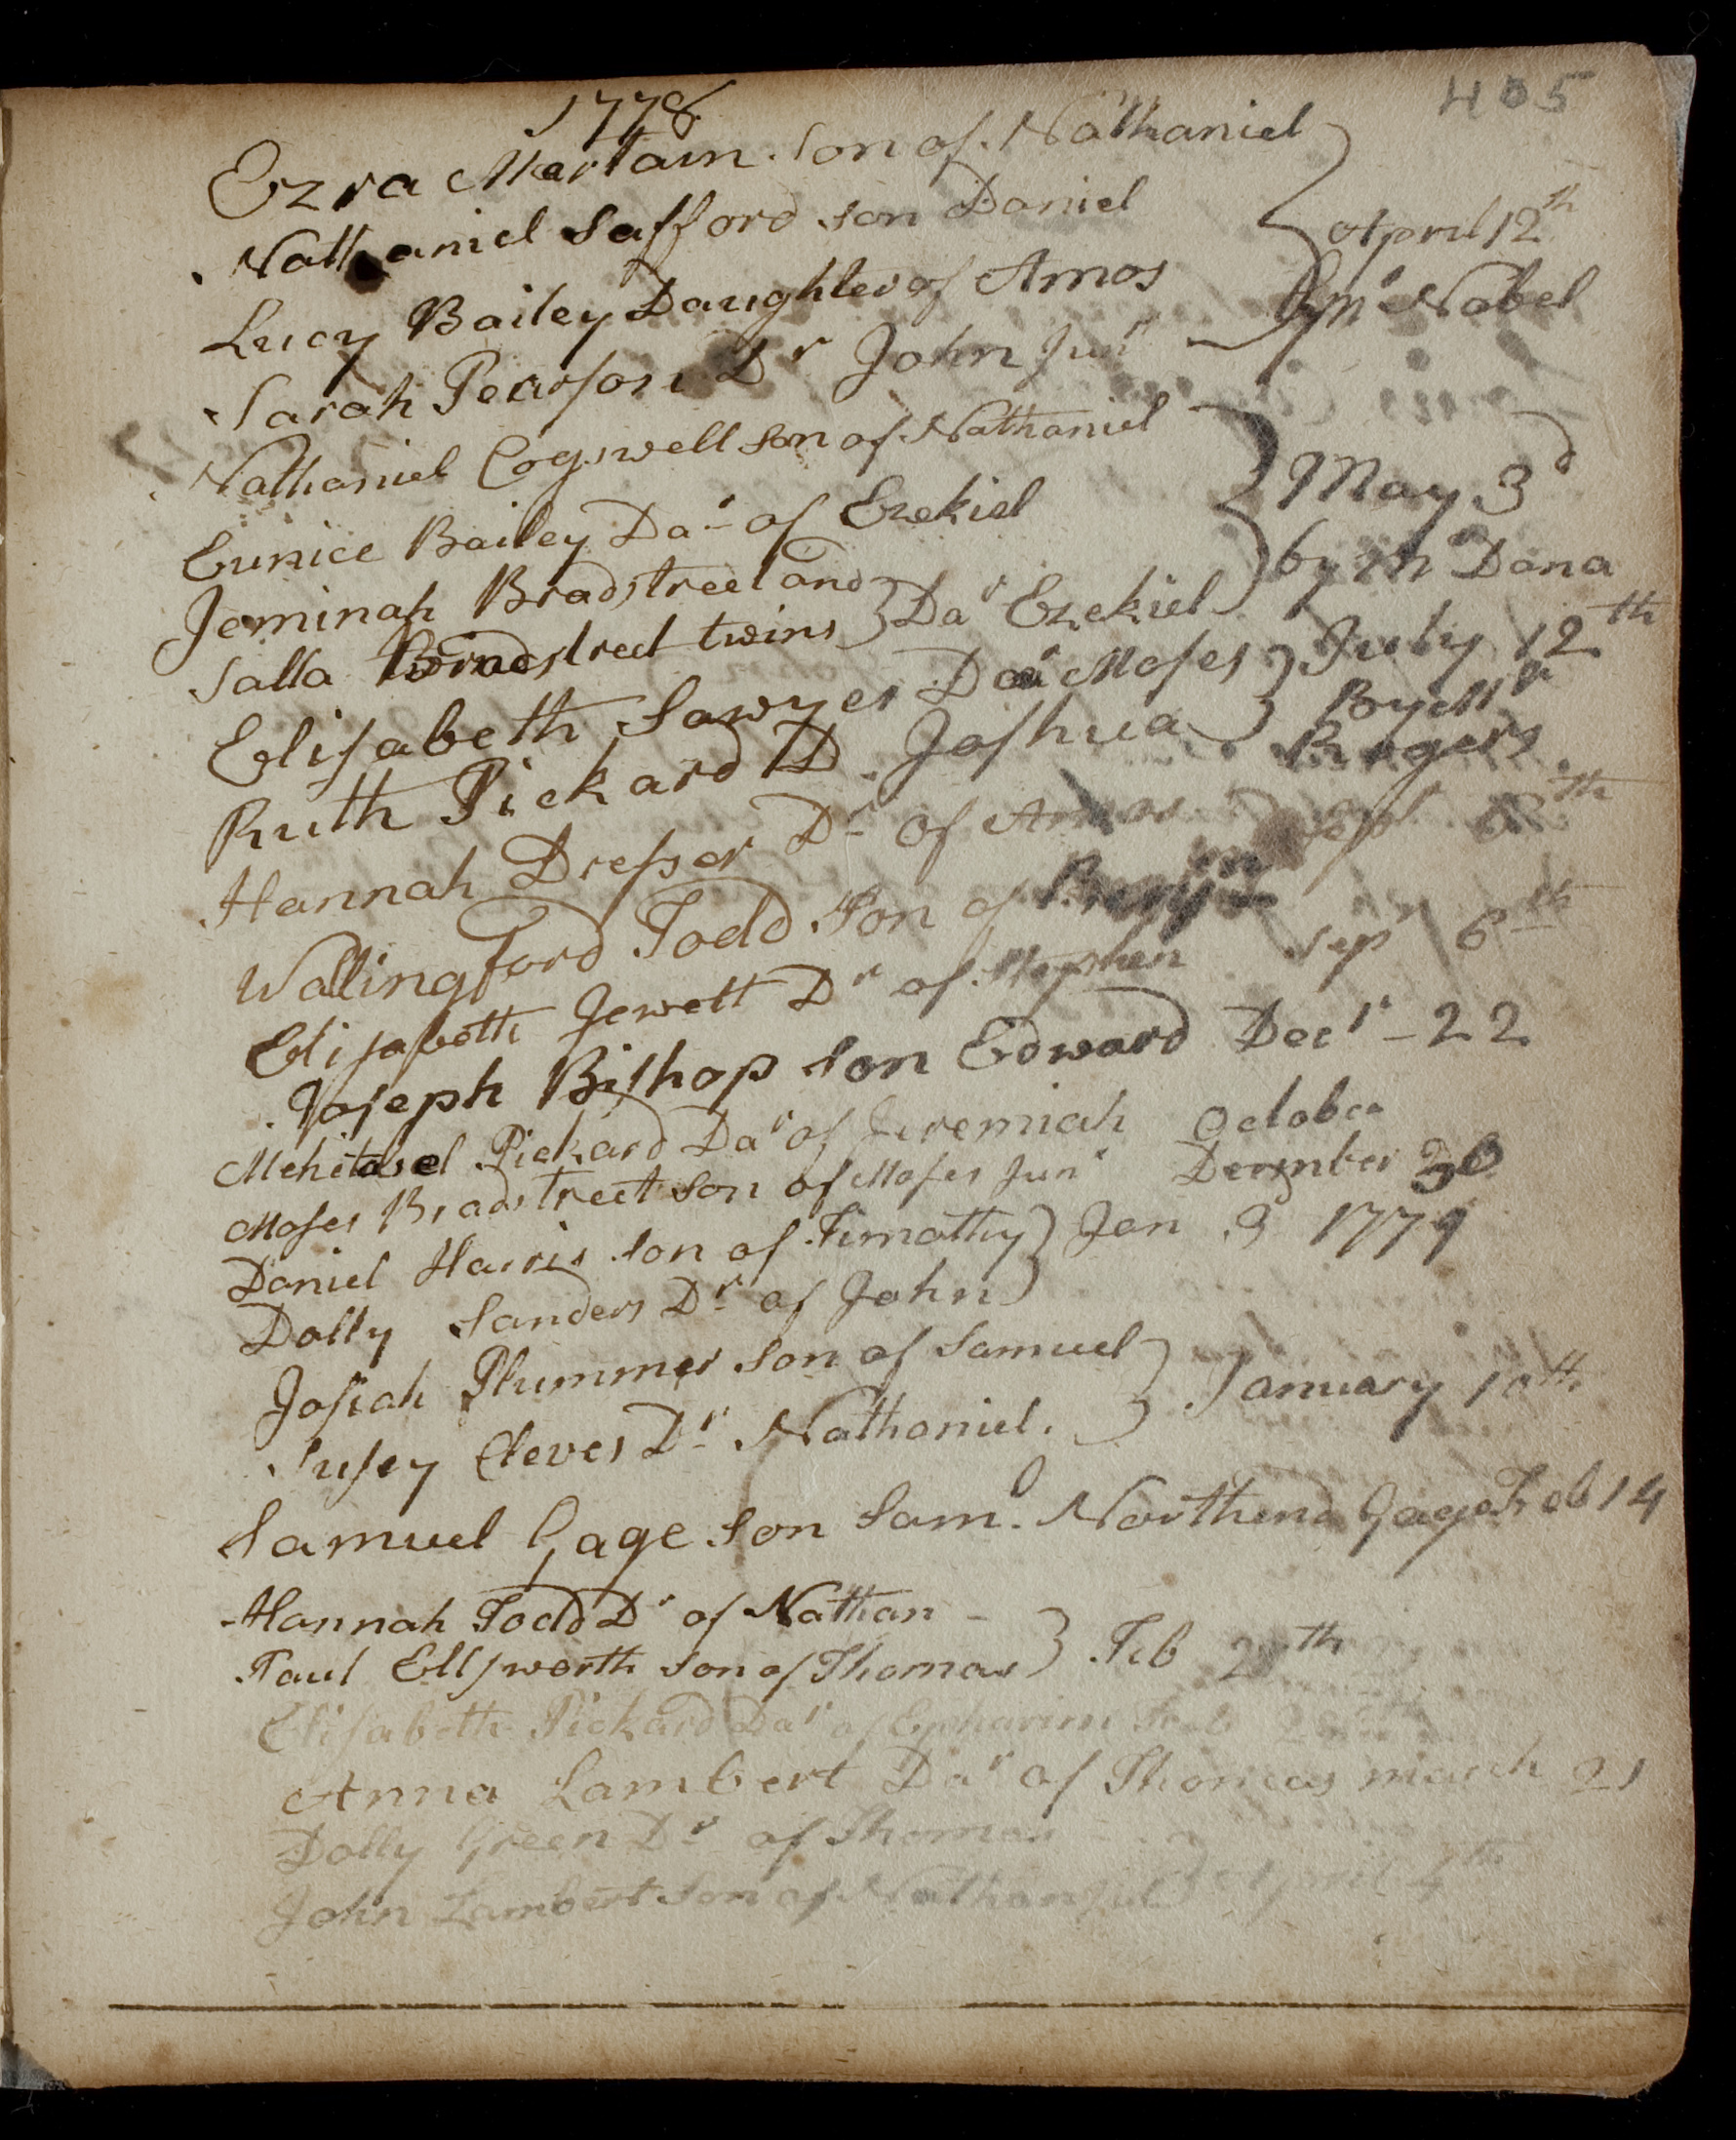 405
1778
Ezra Martain son of Nathaniel
Nathaniel Safford son Daniel
April 12th
Lucy Bailey Daughter of Amos
By Mr Nobel
Sarah Pearson Dr John Junr
Nathaniel Cogswell son of Nathaniel
May 3d
Eunice Bailey Dar of Ezekiel
by Mr Dana
Jeminah Bradstreet and
Salla Bradstreet twins Dar Ezekiel
Elisabeth Sawyer Dar Moses July 12th
Ruth Pickard D Joshua By Mr
Rogers
Hannah Dresser Dr of Amos Sepr
Wallingford Todd Son of Benjn
Elisabeth Jewett Dr of Stephen Sepr 6th
Joseph Bishop son Edward Decr - 22
Mehitabel Pickard Dar of Jeremiah October
Moses Bradstreet son of Moses Junr December 30
Daniel Harris son of Timothy Jan 3 1779
Dolly Sanders Dr of John
Josiah Plummer son of Samuel
January 10th
Susey Cleves Dr Nathaniel.
Samuel Gage son Saml. Northend Gage Feb 14
Hannah Todd Dr of Nathan -
Paul Ellsworth son of Thomas Feb 28th
Elisabeth Pickard Dar of Epharim Feb
Anna Lambert Dar of Thomas march 21
Dolly Green Dr of Thomas
John Lambert Son of Nathaniel April 4th